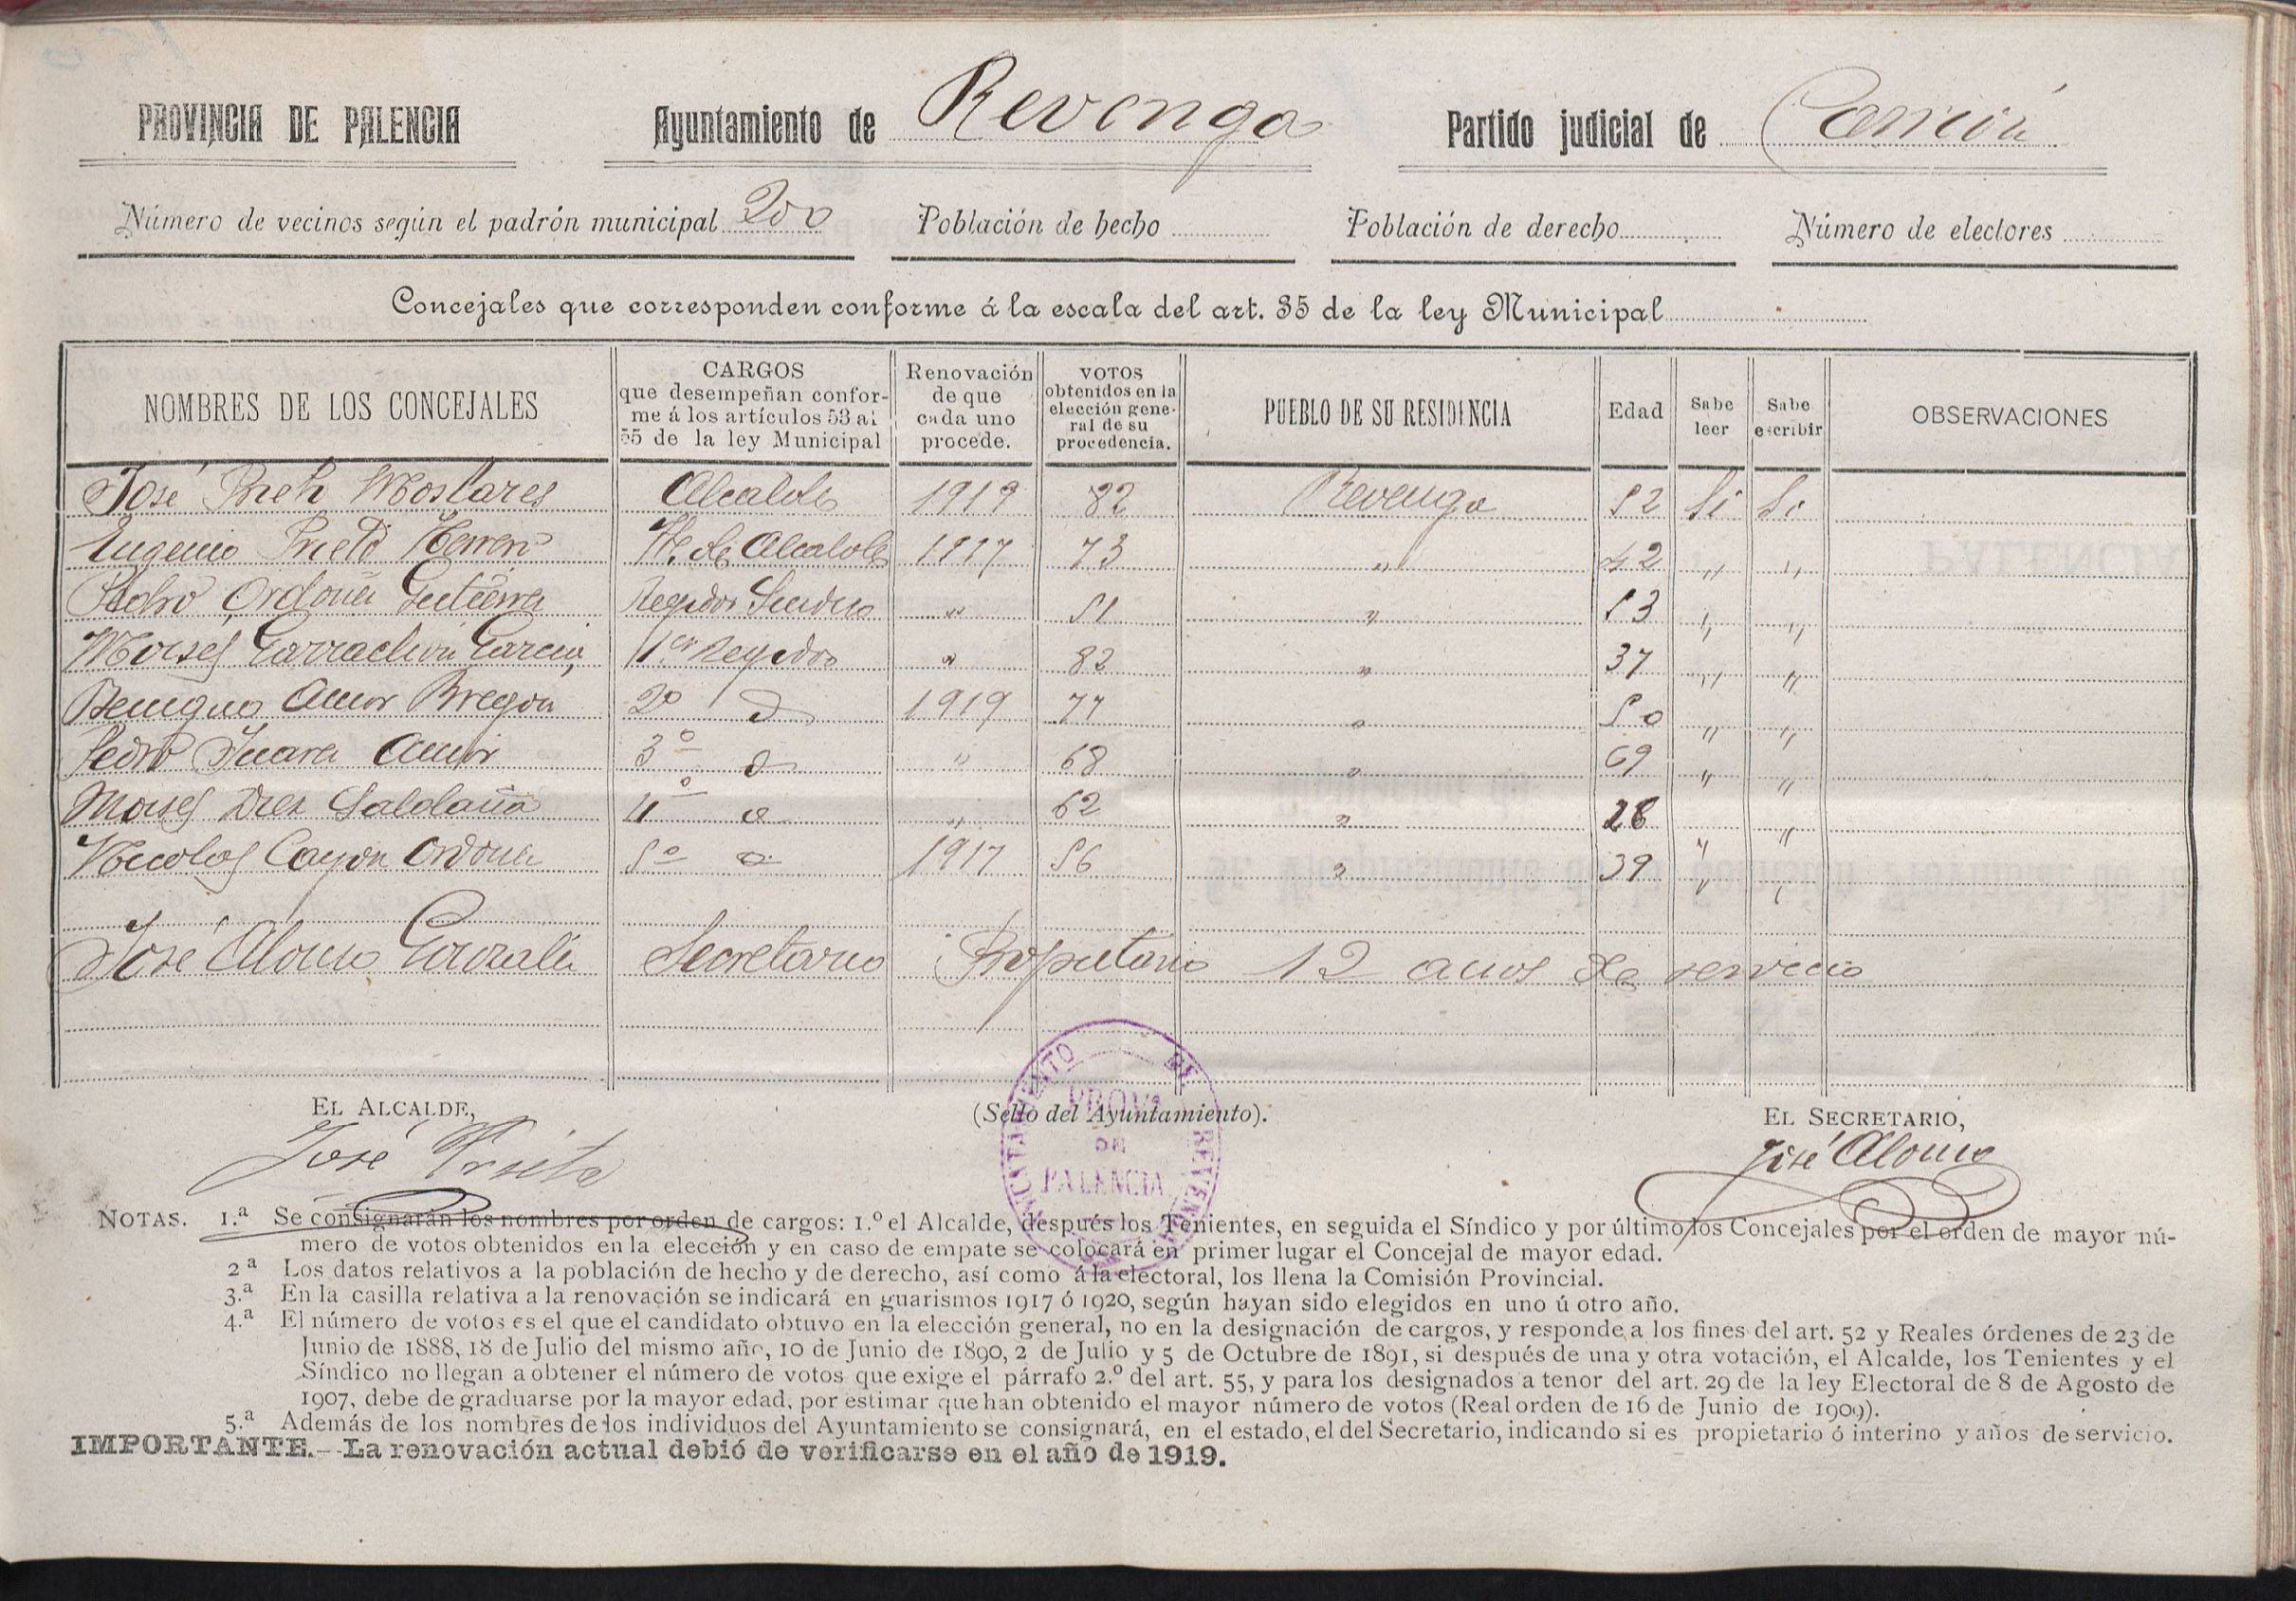 PROVINCIA DE PALENCIA Ayuntamiento de Revenga Partido judicial de Carrión
Número de vecinos según el padrón municipal 200 Población de hecho Población de derecho Número de electores
Concejales que corresponden conforme á la escala del art. 35 de la ley Municipal
NOMBRES DE LOS CONCEJALES
CARGOS
que desempeñan confor-
me á los artículos 53 al
55 de la ley Municipal
Renovación
de que
cada uno
procede.
VOTOS
obtenidos en la
elección gene-
ral de su
procedencia.
PUEBLO DE SU RESIDENCIA
Edad
Sabe
leer
Sabe
escribir
OBSERVACIONES
José Prieto Mostares Alcalde 1919 82 Revenga 52 Si Si
Eugenio Prieto Herrero Te. de Alcalde 1917 73 " 42 " "
Pedro Ordoñez Gutierrez Regidor Sindico " 51 " 53 " "
Moises Garrachón Garcia 1er Regidor " 82 " 37 " "
Benigno Amor Bregon 2º d 1919 77 " 50 " "
Pedro Amor 3º d " 68 " 69 " "
Moises Diez Saldaña 4º d " 62 " 28 " "
Nicolas Cayon Ordoñez 5º d 1917 56 " 39 " "
José Alonso Gonzalez Secretario Propietario 12 años de servicio
EL ALCALDE,
José Prieto
(Sello del Ayuntamiento).
AYUNTAMIENTO DE REVENGA
PROVª
DE
PALENCIA
EL SECRETARIO,
José Alonso
NOTAS. 1.ª Se consignarán los nombres por orden de cargos: 1.º el Alcalde, después los Tenientes, en seguida el Síndico y por último los Concejales por el orden de mayor nú-
mero de votos obtenidos en la elección y en caso de empate se colocará en primer lugar el Concejal de mayor edad.
2ª Los datos relativos a la población de hecho y de derecho, así como á la electoral, los llena la Comisión Provincial.
3.ª En la casilla relativa a la renovación se indicará en guarismos 1917 ó 1920, según hayan sido elegidos en uno ú otro año.
4.ª El número de votos es el que el candidato obtuvo en la elección general, no en la designación de cargos, y responde a los fines del art. 52 y Reales órdenes de 23 de
Junio de 1888, 18 de Julio del mismo año, 10 de Junio de 1890, 2 de Julio y 5 de Octubre de 1891, si después de una y otra votación, el Alcalde, los Tenientes y el
Síndico no llegan a obtener el número de votos que exige el párrafo 2.º del art. 55, y para los designados a tenor del art. 29 de la ley Electoral de 8 de Agosto de
1907, debe de graduarse por la mayor edad, por estimar que han obtenido el mayor número de votos (Real orden de 16 de Junio de 1909).
5.ª Además de los nombres de los individuos del Ayuntamiento se consignará, en el estado, el del Secretario, indicando si es propietario ó interino y años de servicio.
IMPORTANTE.—La renovación actual debió de verificarse en el año de 1919.